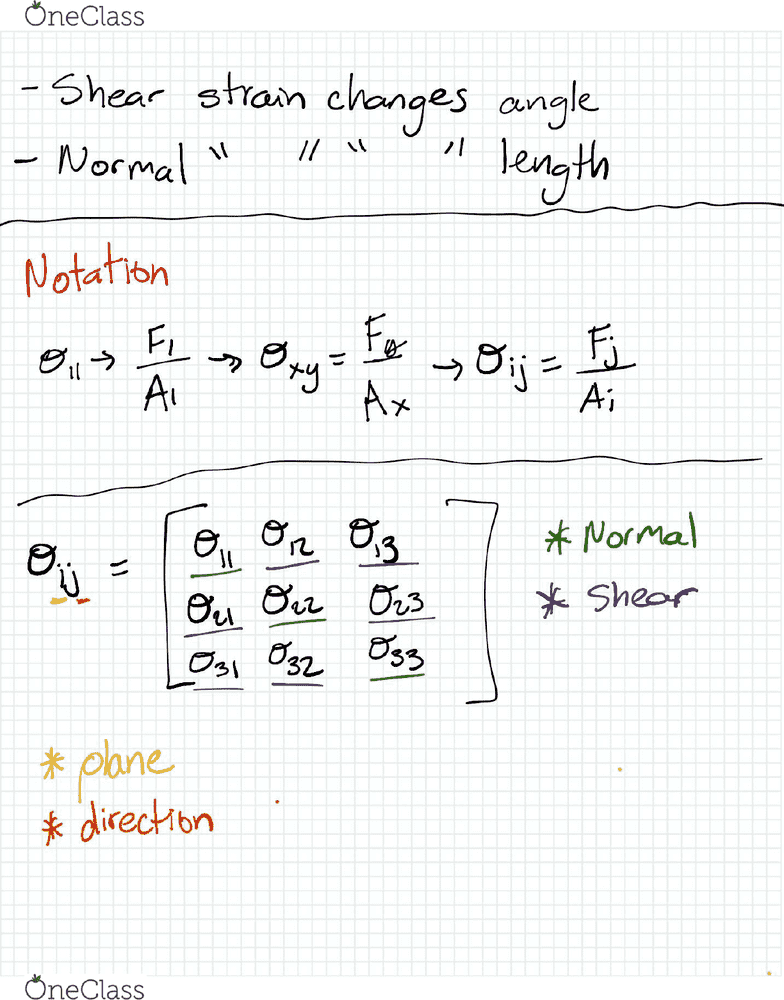 OneClass
- Shear strain changes angle
- Normal " " " " length
Notation
σ₁₁ → F₁/A₁ → σxy = F/Ax → σij = Fj/Ai
σij = [ σ₁₁ σ₁₂ σ₁₃
σ₂₁ σ₂₂ σ₂₃
σ₃₁ σ₃₂ σ₃₃ ]
* Normal
* Shear
* plane
* direction
OneClass